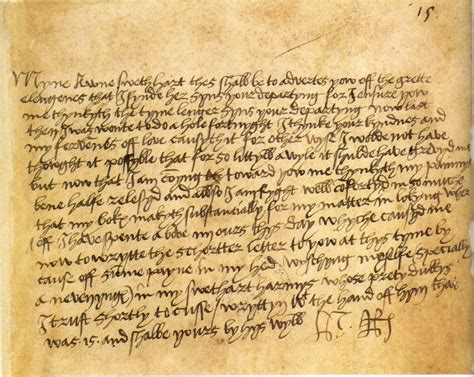 15
Myne awne swethart thes shall be to advertes yow off the grette
elengenes that I fynde her syns your departyng for I ensure yow
me thynkyth the tyme lenger syns your departyng now last
then I was wonte to do a hole fortnyght I thynke your kyndnes and
my fervenes off love causyth it for other wyse I wolde not have
thowght it possyble that for so littyll a wyle it shulde have grevyd me
but now that I am comyng toward yow me thynkyth my paynnys
bene halfe relesyd and allso I am ryght well comfortyd in so muche
that my boke makyth substancially for my matter in lokyng wher
off I have spente above ours thys day whyche causyd me
now to wrytte the schortter letter to yow at thys tyme by
cause off sume payne in my hed wyshyng my selfe specially
a nevenyng in my swethart harmys whose prety dukkys
I trust shortly to cusse wryttyn the hand off hym that
was is and shalbe yours by hys wyll H R